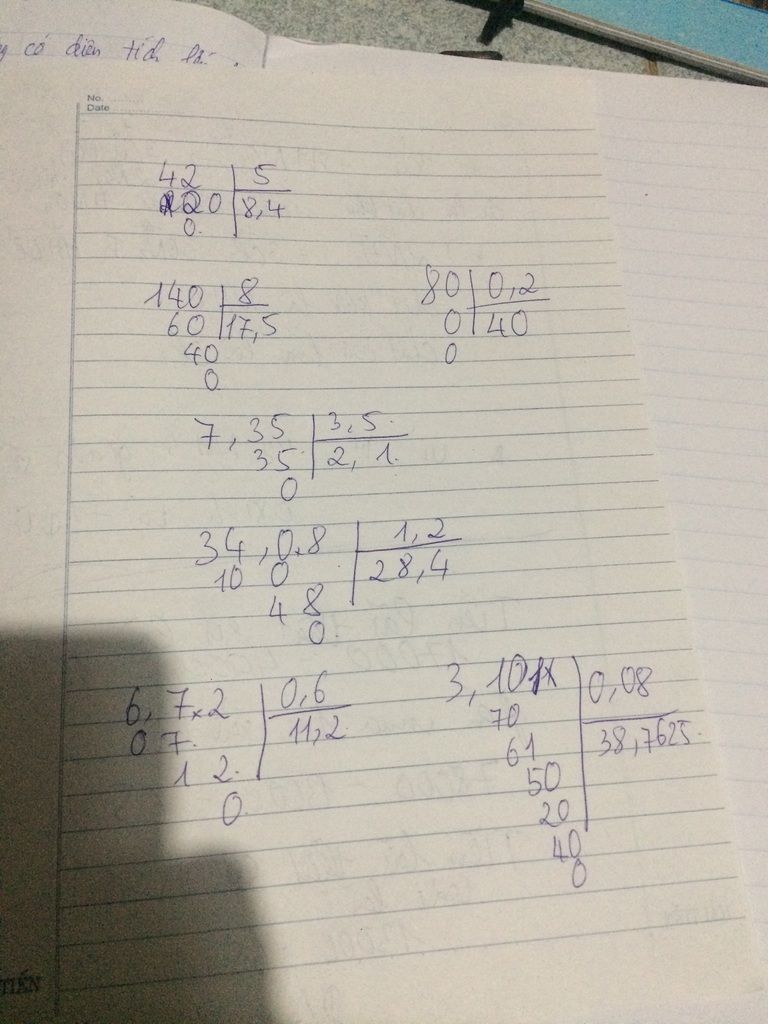 có diện tích
No.
Date
42 5
20 8,4
0
140 8
60 17,5
40
0
80 0,2
0 40
0
7,35 3,5
35 2,1
0
34,0.8 1,2
10 0 28,4
4 8
0
6,7x2 0,6
0 7 11,2
1 2
0
3,101 0,08
70 38,7625
61
50
20
40
0
TIẾN